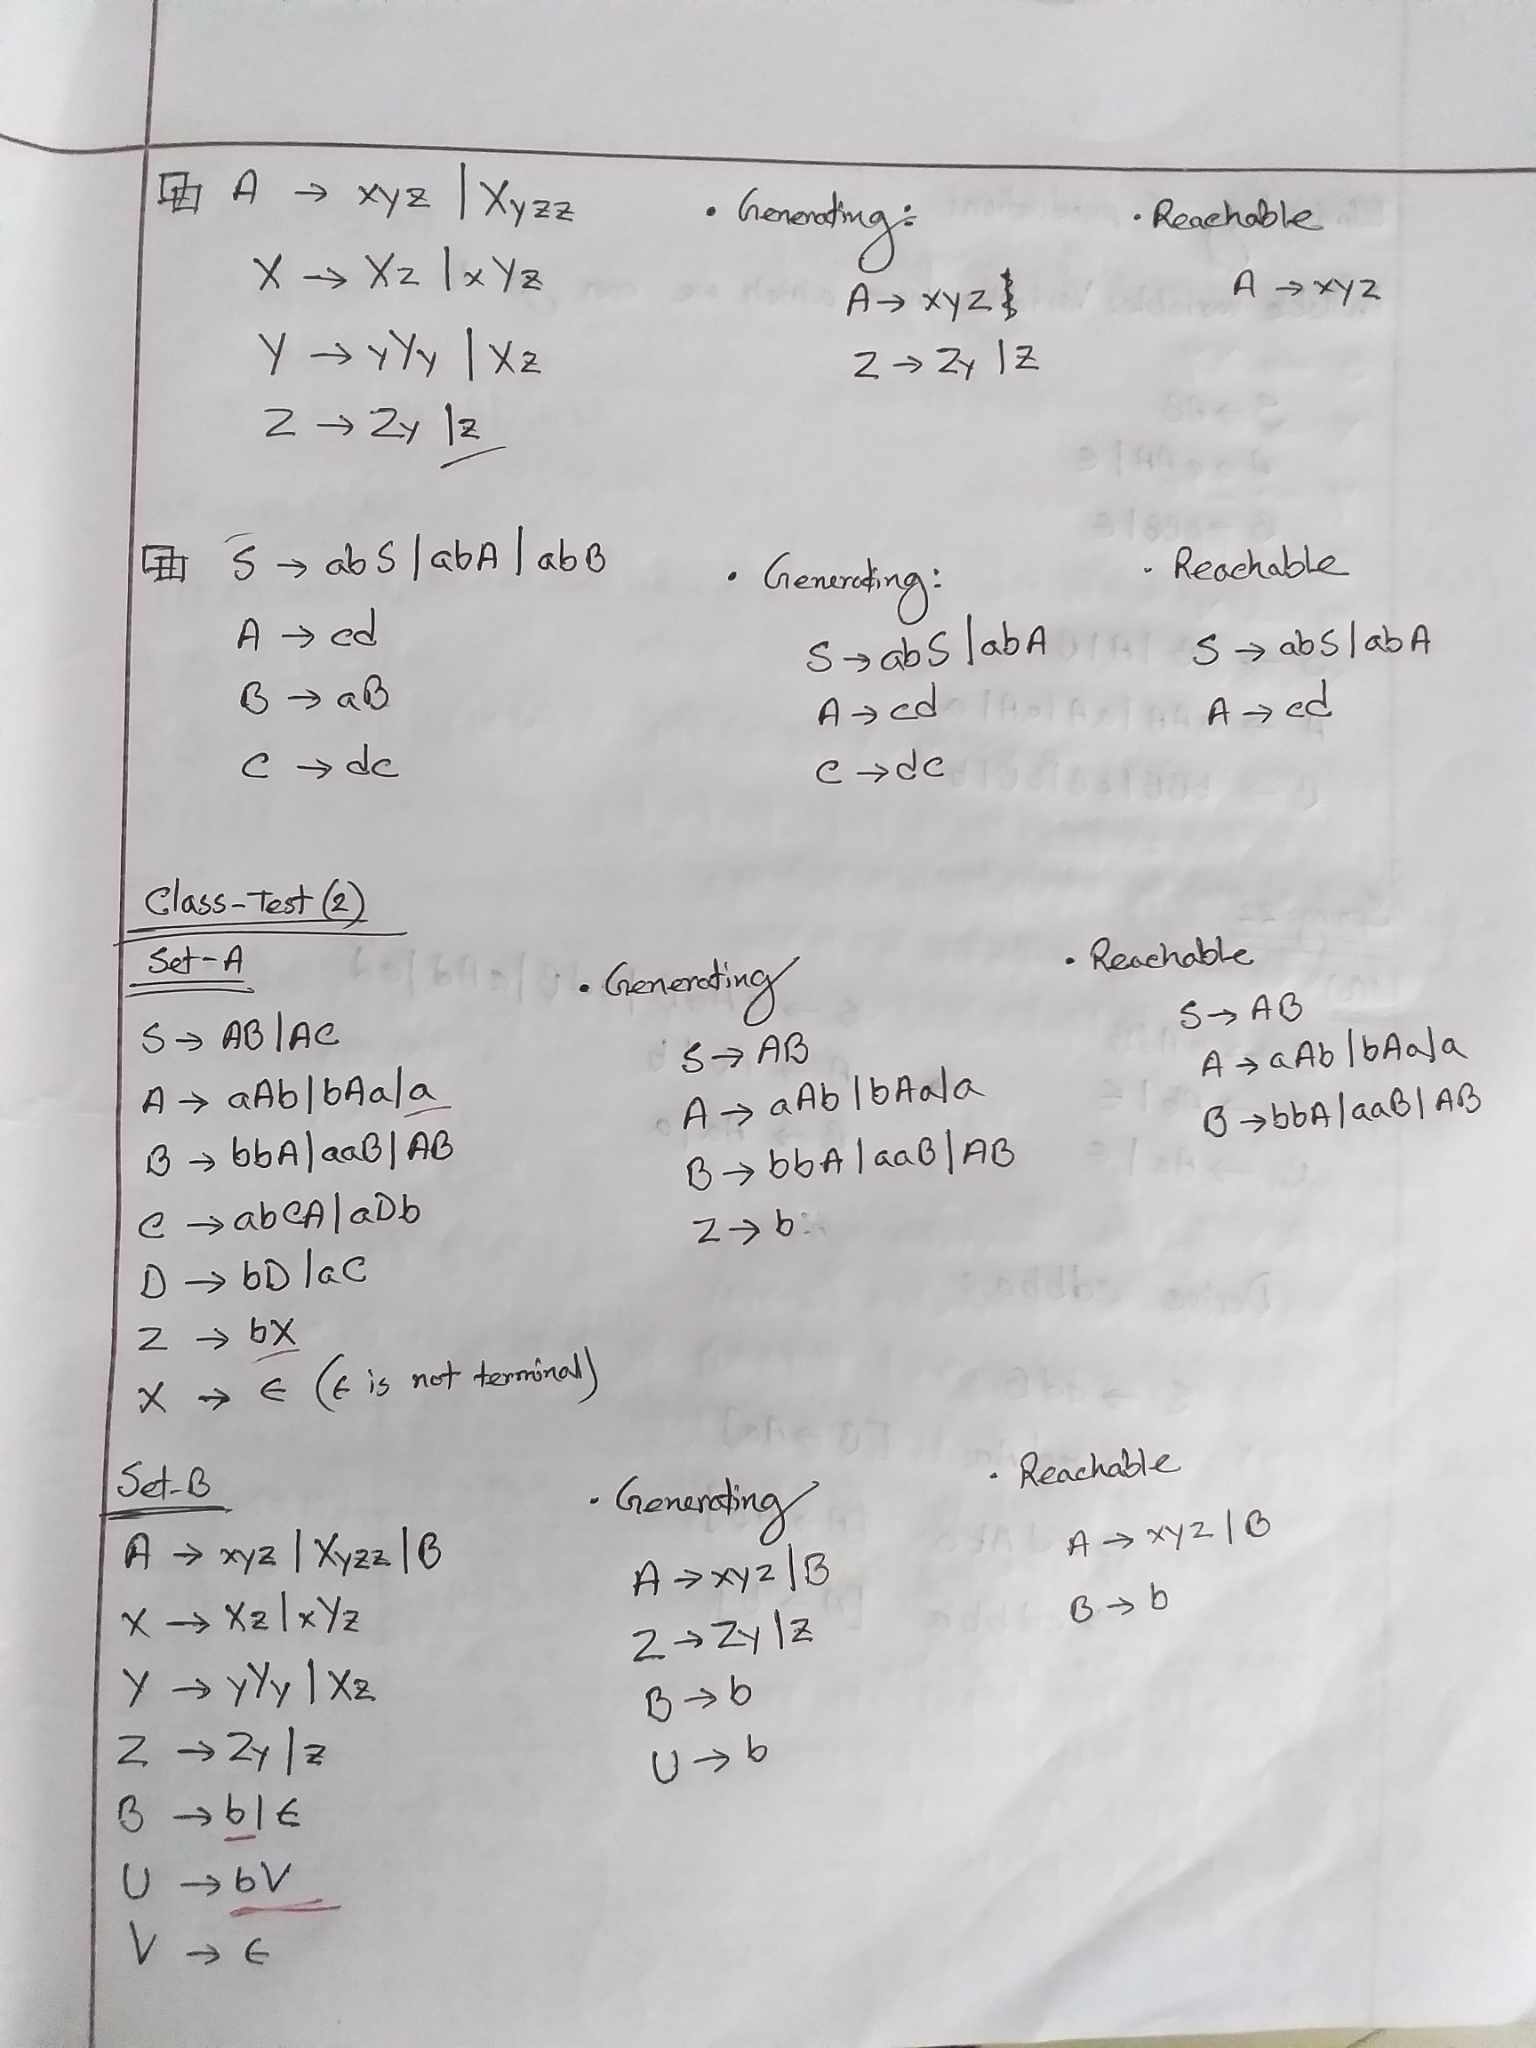 A → xyz | Xyzz
X → Xz | xYz
Y → yYy | Xz
Z → Zy | z
• Generating:
A → xyz
Z → Zy | z
• Reachable
A → xyz
S → abS | abA | abB
A → cd
B → aB
C → dc
• Generating:
S → abS | abA
A → cd
C → dc
• Reachable
S → abS | abA
A → cd
Class-Test (2)
Set-A
S → AB | AC
A → aAb | bAa | a
B → bbA | aaB | AB
C → abCA | aDb
D → bD | aC
Z → bX
X → ∈ (∈ is not terminal)
• Generating
S → AB
A → aAb | bAa | a
B → bbA | aaB | AB
Z → b
• Reachable
S → AB
A → aAb | bAa | a
B → bbA | aaB | AB
Set-B
A → xyz | Xyzz | B
X → Xz | xYz
Y → yYy | Xz
Z → Zy | z
B → b | ∈
U → bV
V → ∈
• Generating
A → xyz | B
Z → Zy | z
B → b
U → b
• Reachable
A → xyz | B
B → b